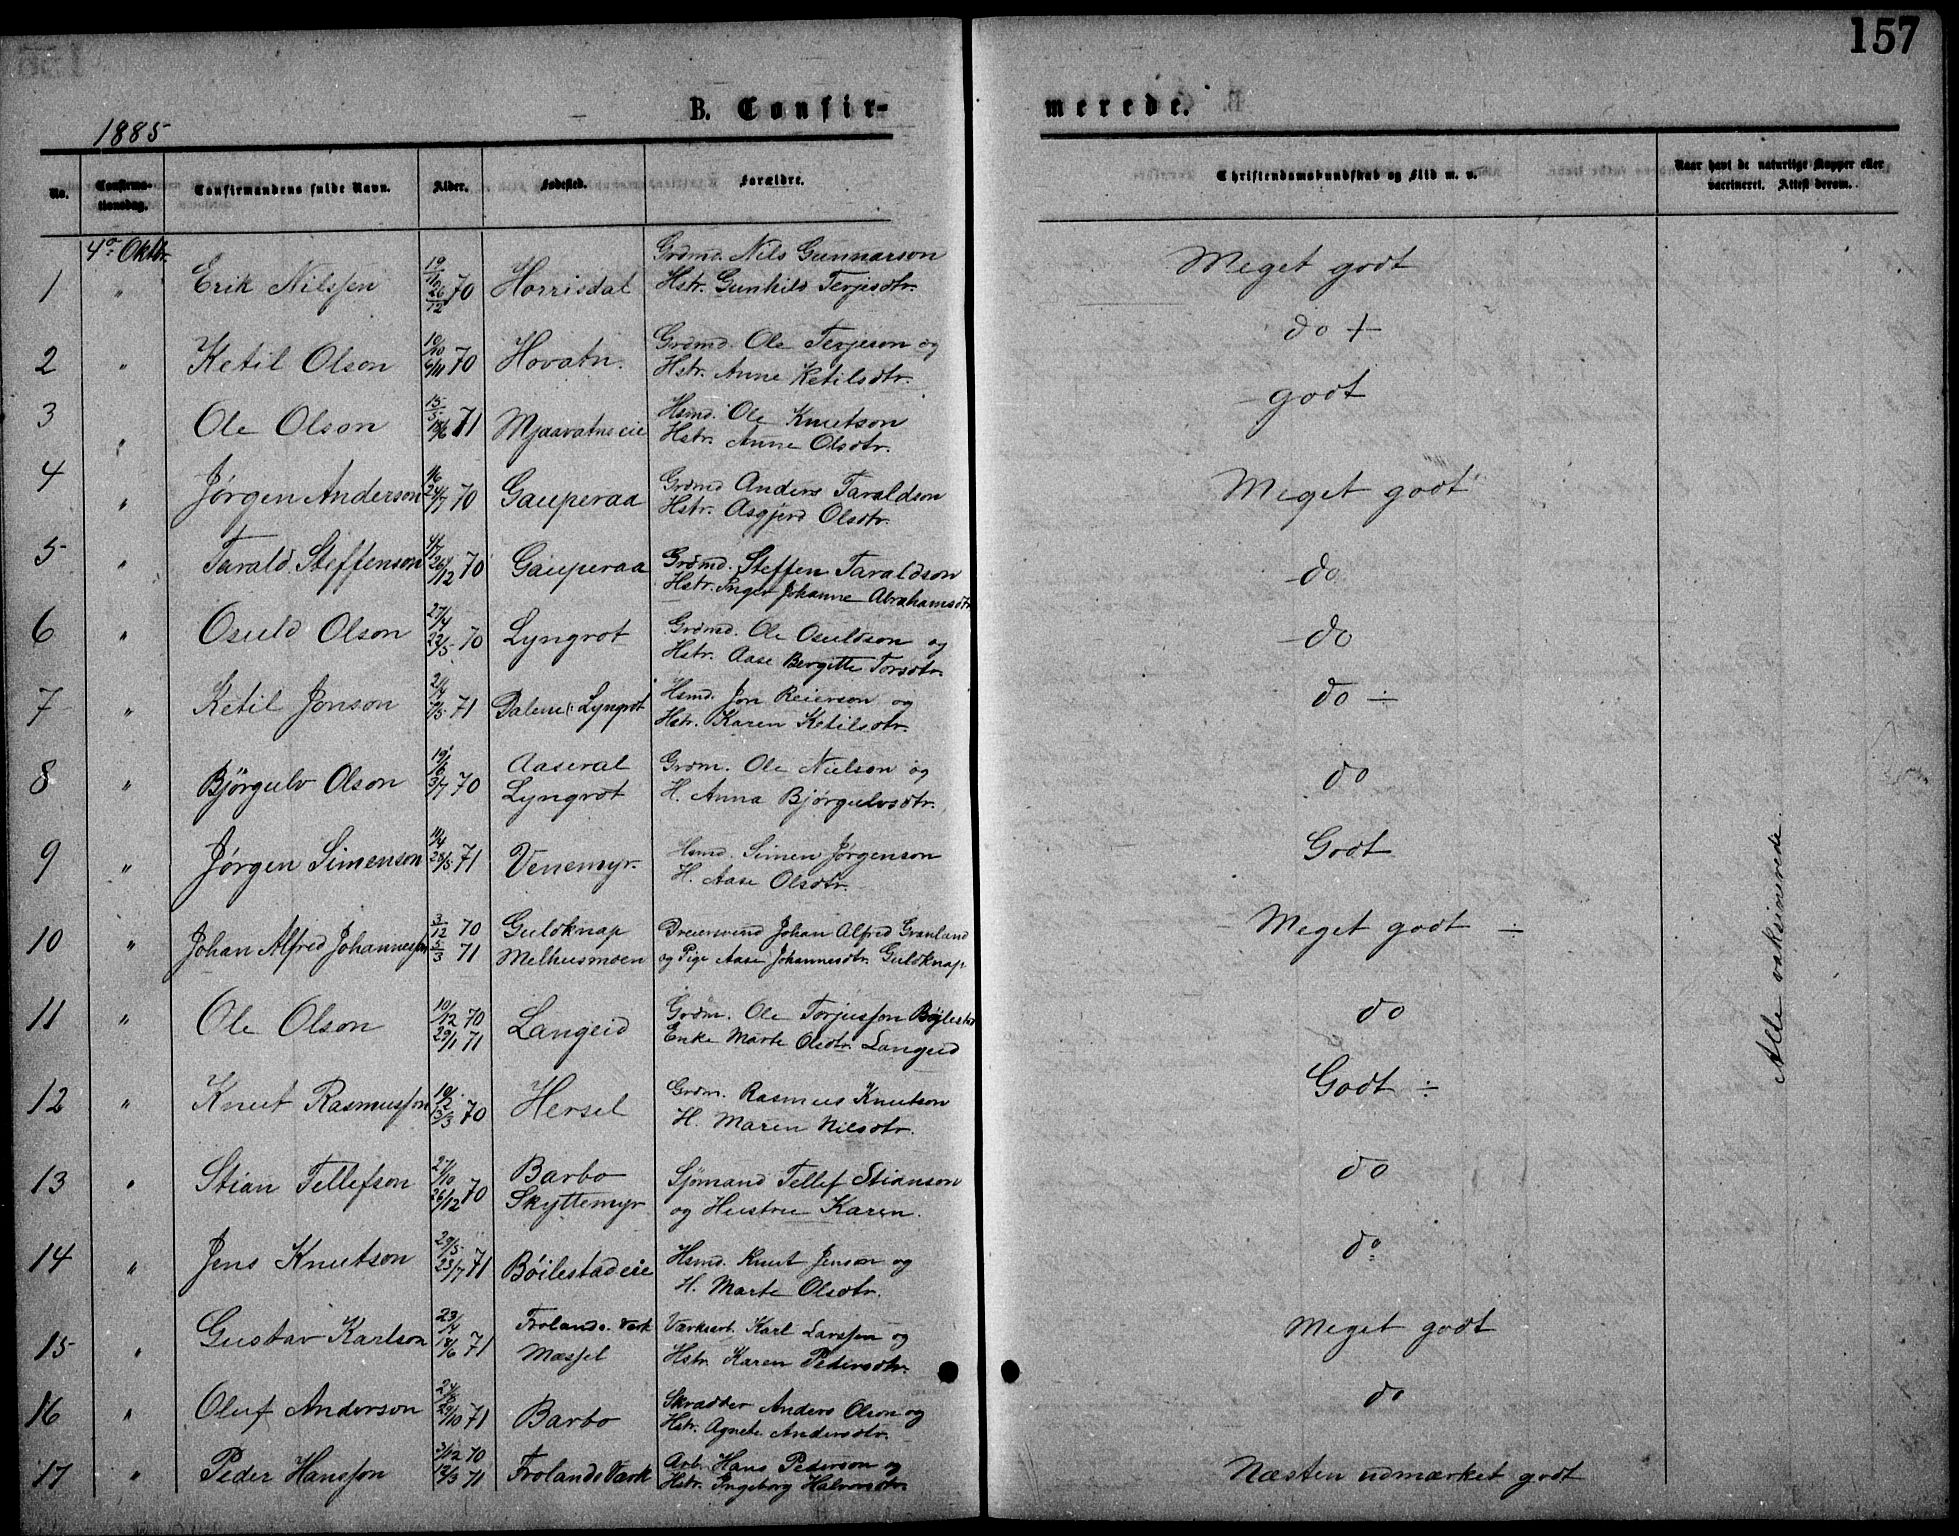 157
B. Confir- merede.
1885
No. Confirma-tionsdag. Confirmandens fulde Navn. Alder. Fødested. Forældre. Christendomskundskab og Flid m. v. Naar havt de naturlige Kopper eller vaccineret. Attest derom.
4de Oktbr.
1 " Erik Nilsson 19/11 26/12 70 Horrisdal Grdmd. Nils Gunnarson Meget godt
Hstr. Gunhild Terjesdtr.
2 " Ketil Olson 19/10 6/11 70 Hovatn. Grdmd. Ole Terjeson og do +
Hstr. Anne Ketilsdtr.
3 " Ole Olson 15/5 18/6 71 Mjaavatns eie Hsmd. Ole Knutson godt
Hstr. Anne Olsdtr.
4 " Jørgen Anderson 1/6 24/7 70 Gauperaa Grdmd Anders Taraldson Meget godt
Hstr. Asgjerd Olsdtr.
5 " Tarald Steffenson 26/12 70 Gauperaa Grdmd. Steffen Taraldson do
Hstr. Inger Johanne Abrahamsdtr
6 " Osuld Olson 27/4 22/5 70 Lyngrot Grdmd. Ole Osuldson og do
Hstr. Aase Bergitte Torsdtr.
7 " Ketil Jonson 71 Dalene Lyngrot Hsmd. Jon Reierson og do ÷
Hstr. Karen Ketilsdtr.
8 " Bjørgulv Olson 19/6 3/7 70 Aaseral Grdm. Ole Nielson og do
Lyngrot H. Anna Bjørgulvsdtr.
9 " Jørgen Simenson 11/4 28/5 71 Venemyr. Hsmd. Simen Jørgenson Godt
H. Aase Olsdtr.
10 " Johan Alfred Johannesson 3/12 70 Guldknap Dreiersvend Johan Alfred Granland Meget godt ÷
5/3 71 Melhusmoen og Pige Aase Johannesdtr. Guldknap
11 " Ole Olson 10/12 70 Langeid Grdm. Ole Torjusson Bøilestad do
29/1 71 Enke Marte Olsdtr. Langeid
12 " Knut Rasmusson 19/2 13/3 70 Hersel Grdm. Rasmus Knutson Godt ÷
H. Maren Nilsdtr.
13 " Stian Tellefson 27/10 26/12 70 Barbo Sjømand Tellef Stianson do
Skyttemyr og Hustru Karen.
14 " Jens Knutson 29/5 23/7 71 Bøilestad eie Hsmd. Knut Jenson og do
H. Marte Olsdtr.
15 " Gustav Karlson 23/4 18/6 71 Frolands. Værk Værksarb. Karl Larssen og Meget godt
Mæsel Hstr. Karen Pedersdtr.
16 " Oluf Anderson 29/10 71 Barbo Skrædder Anders Olson og do
Hstr. Agnete Andersdtr.
17 " Peder Hansson 3/12 70 Frolands Værk Arb. Hans Pederson og Næsten udmærket godt
12/3 71 Hstr. Ingeborg Halvorsdtr.
Alle vaksinerede.